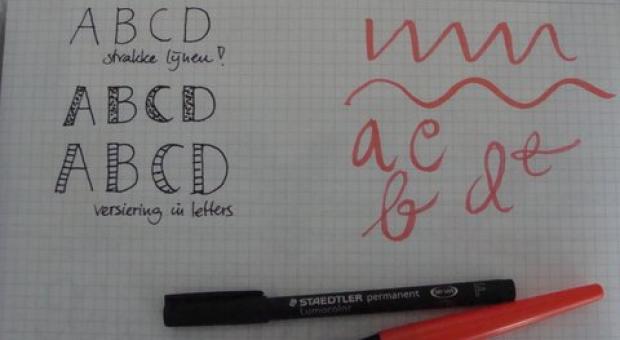 ABCD
strakke lijnen!
ABCD
ABCD
versiering in letters
a c
b d e
STAEDTLER permanent
Lumocolor